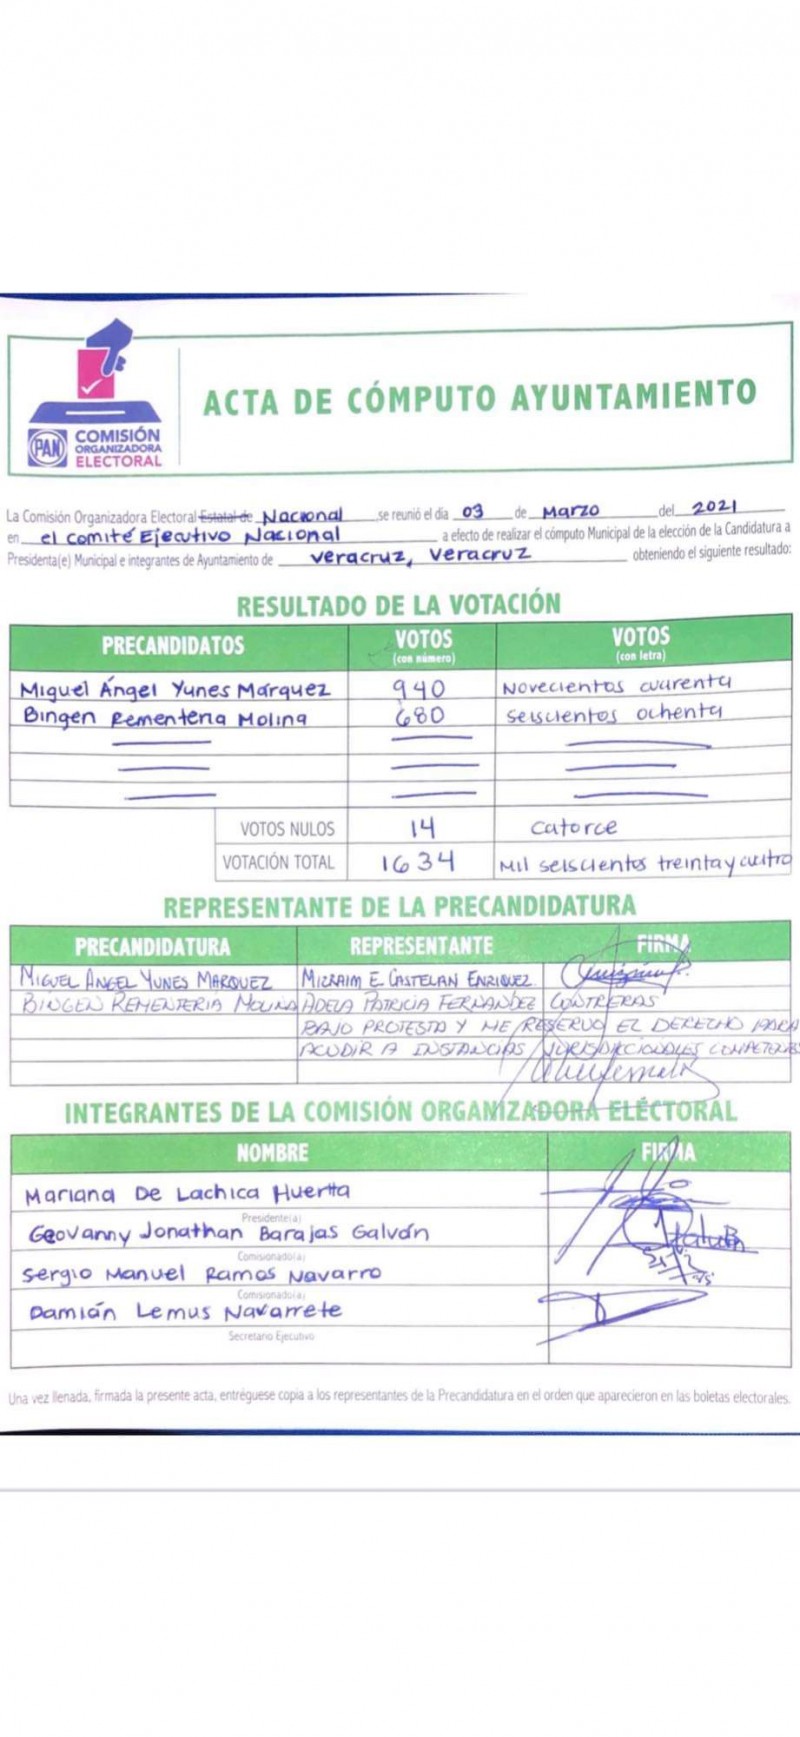 PAN
COMISIÓN
ORGANIZADORA
ELECTORAL
ACTA DE CÓMPUTO AYUNTAMIENTO
La Comisión Organizadora Electoral Estatal de Nacional se reunió el día 03 de Marzo del 2021
en el comité Ejecutivo Nacional a efecto de realizar el cómputo Municipal de la elección de la Candidatura a
Presidenta(e) Municipal e integrantes de Ayuntamiento de Veracruz, Veracruz obteniendo el siguiente resultado:
RESULTADO DE LA VOTACIÓN
PRECANDIDATOS VOTOS (con número) VOTOS (con letra)
Miguel Ángel Yunes Márquez 940 Novecientos cuarenta
Bingen Rementeria Molina 680 Seiscientos ochenta
VOTOS NULOS 14 catorce
VOTACIÓN TOTAL 1634 Mil seiscientos treinta y cuatro
REPRESENTANTE DE LA PRECANDIDATURA
PRECANDIDATURA REPRESENTANTE FIRMA
MIGUEL ANGEL YUNES MARQUEZ MIZRAIM E. CASTELAN ENRIQUEZ
BINGEN REMENTERIA MOLINA ADELA PATRICIA FERNANDEZ CONTRERAS
BAJO PROTESTA Y ME RESERVO EL DERECHO PARA
ACUDIR A INSTANCIAS JURISDICCIONALES
INTEGRANTES DE LA COMISIÓN ORGANIZADORA ELECTORAL
NOMBRE FIRMA
Mariana De Lachica Huerta
Presidente(a)
Geovanny Jonathan Barajas Galván
Comisionado(a)
Sergio Manuel Ramos Navarro
Comisionado(a)
Damián Lemus Navarrete
Secretario Ejecutivo
Una vez llenada, firmada la presente acta, entréguese copia a los representantes de la Precandidatura en el orden que aparecieron en las boletas electorales.